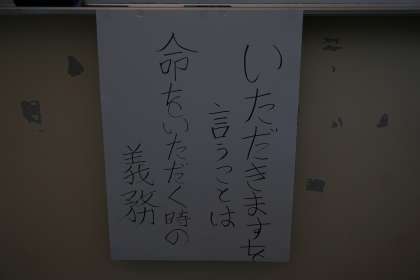 いただきますを
言うことは
命をいただく時の
義務